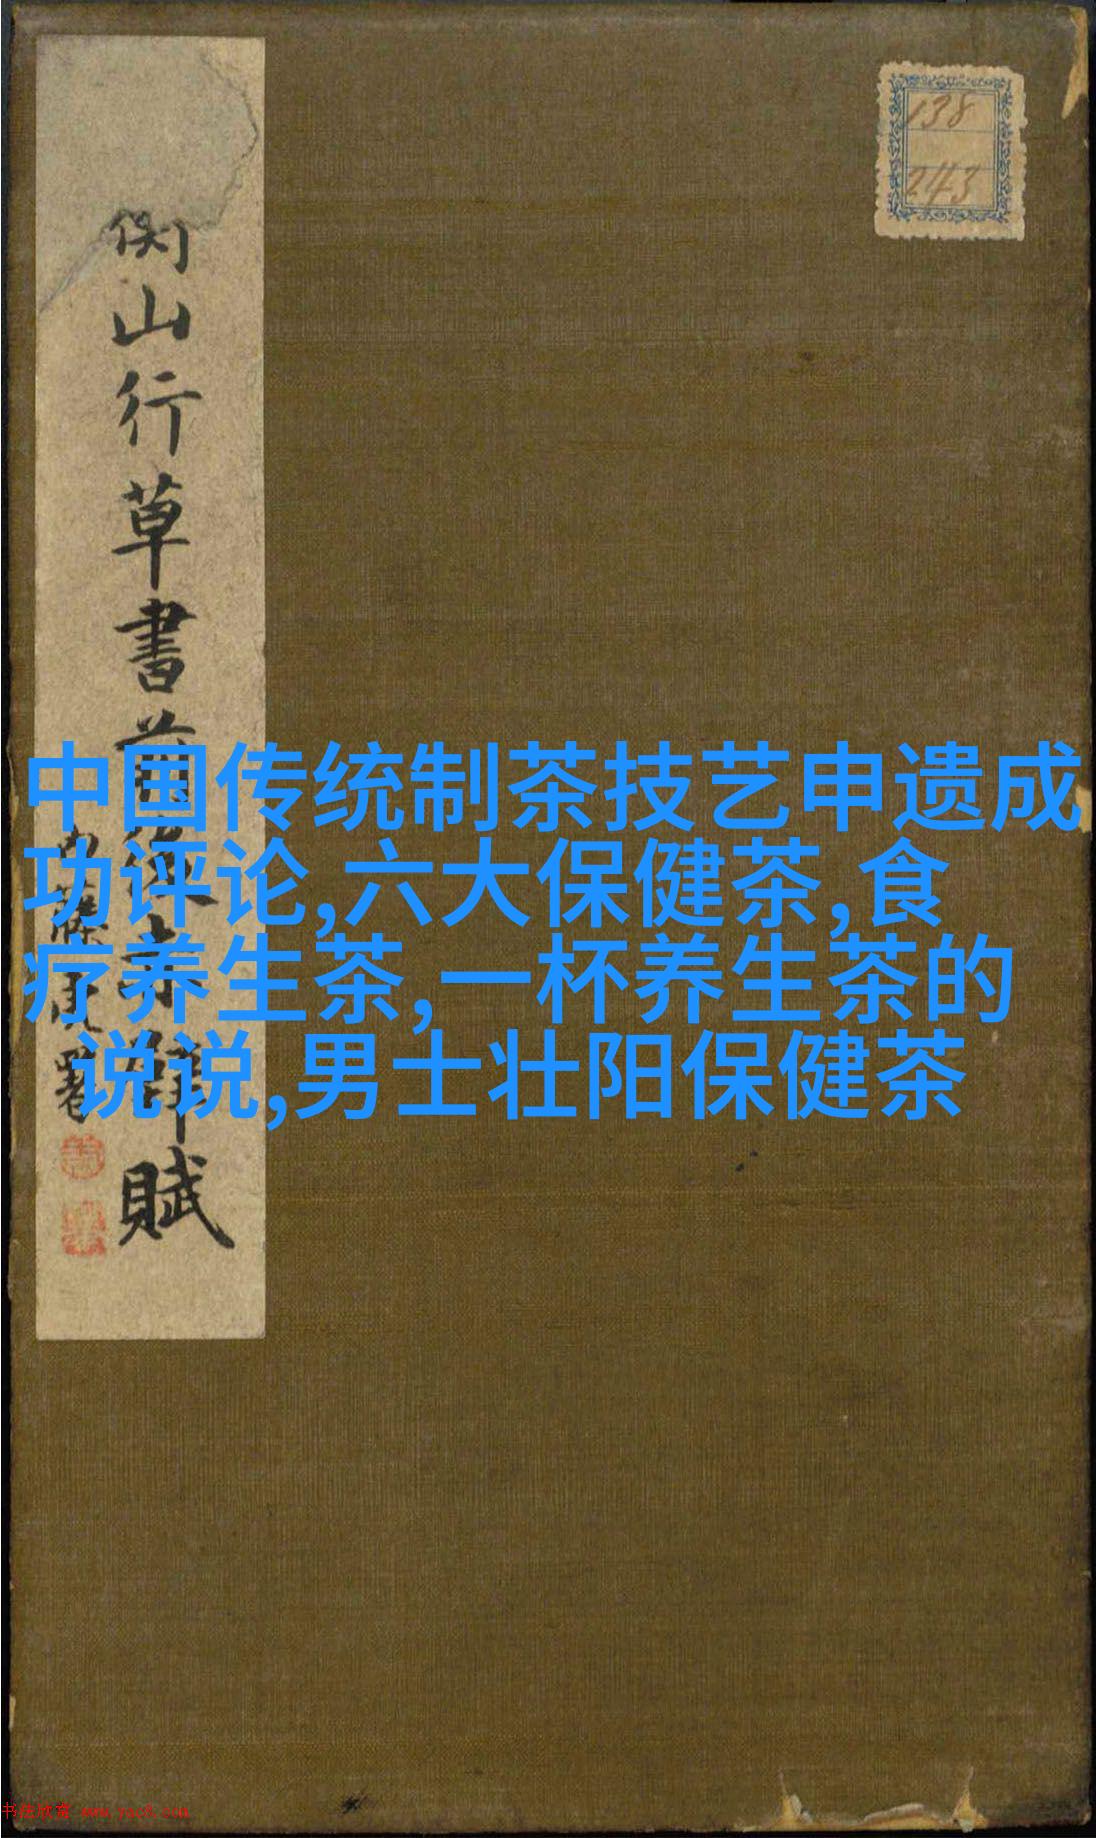 138
243
山行草書前後赤壁賦
中国传统制茶技艺申遗成
功评论,六大保健茶,食
疗养生茶,一杯养生茶的
说说,男士壮阳保健茶
书法欣赏 www.yac8.com